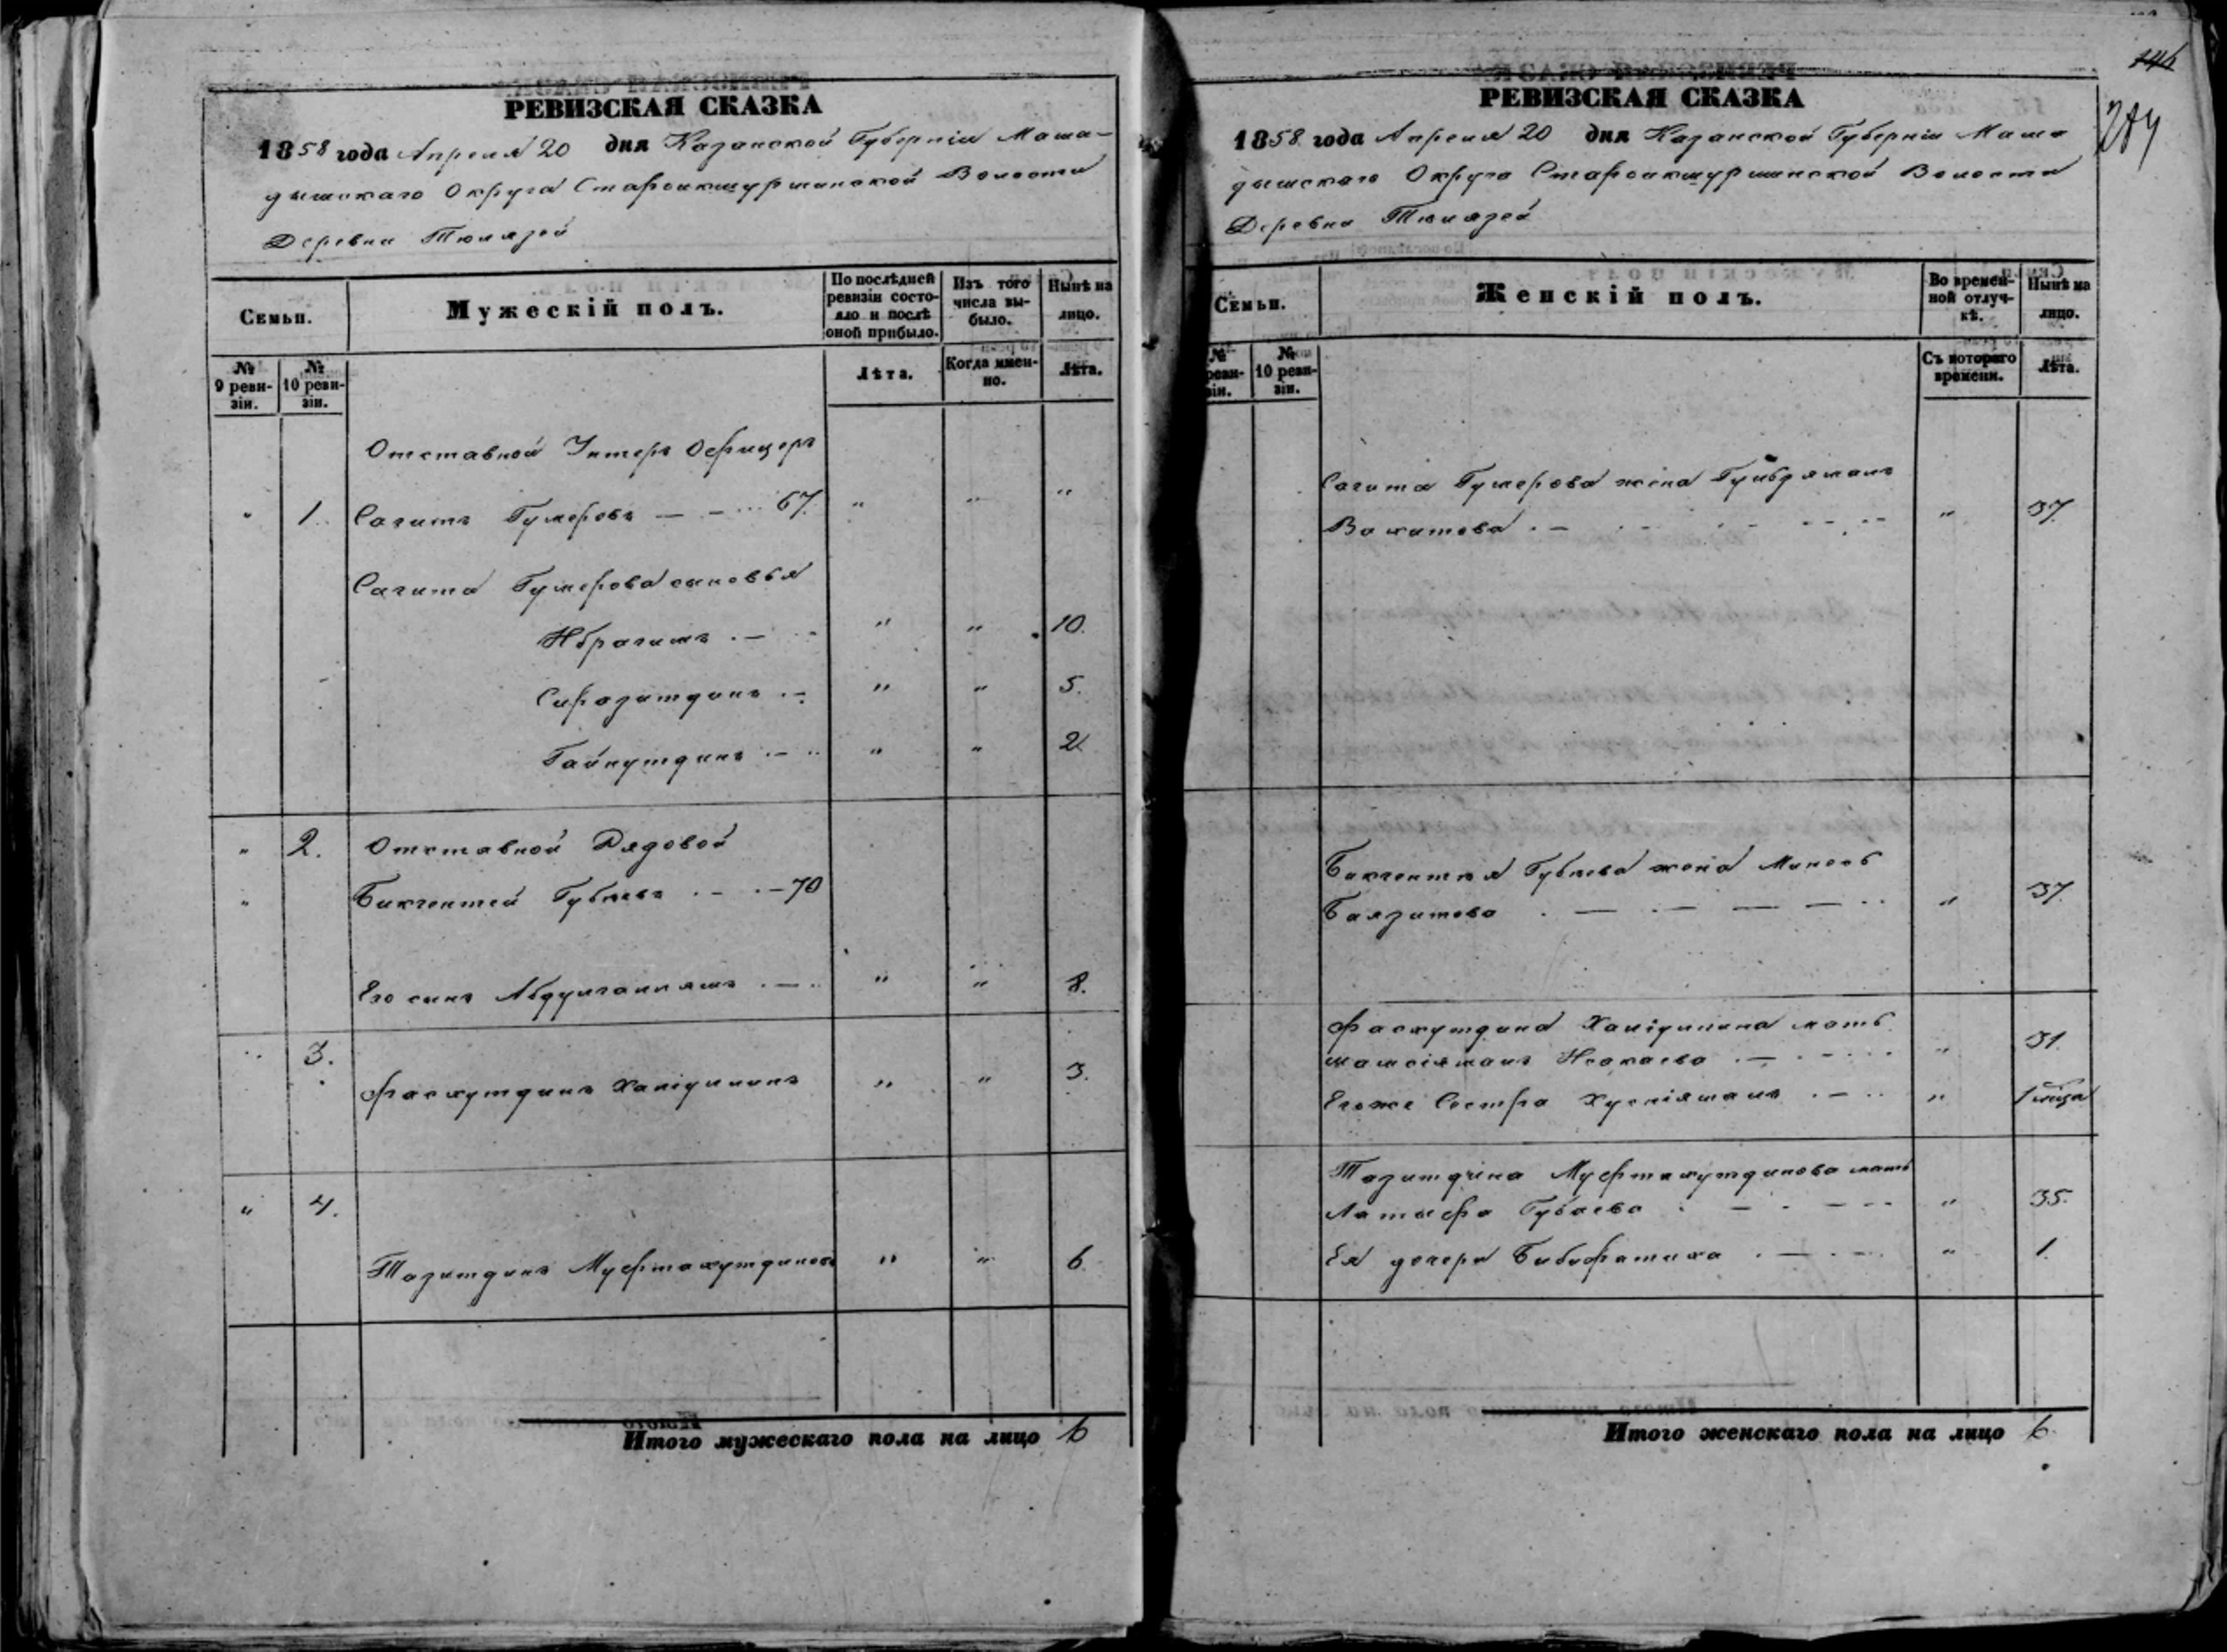 РЕВИЗСКАЯ СКАЗКА
1858 года Апреля 20 дня Казанской Губерніи Мама-
дышскаго Округа Староикшурминской Волости
Деревни Тюлязей
Семьи.
Мужескій полъ.
По послѣдней ревизіи состояло и послѣ оной прибыло.
Изъ того числа выбыло.
Нынѣ на лицо.
№ 9 ревизіи.
№ 10 ревизіи.
Лѣта.
Когда именно.
Лѣта.
Отставной Унтеръ Офицеръ
" 1. Сагитъ Гумеровъ — - ... 67. " " "
Сагита Гумерова сыновья
Ибрагимъ . — " " 10.
Сиразитдинъ . - " " 5.
Гайнутдинъ . — .. " " 2.
" 2. Отставной Рядовой
" Бикчентей Губаевъ . — . — 70
Его сынъ . — . " " 8.
" 3.
Фасхутдинъ " " 3.
" 4.
Тазитдинъ Муфтахутдиновъ " " 6.
Итого мужескаго пола на лицо 6
146
284
РЕВИЗСКАЯ СКАЗКА
1858 года Апреля 20 дня Казанской Губерніи Мама
дышскаго Округа Староикшурминской Волости
Деревни Тюлязей
Семьи.
Женскій полъ.
Во временной отлучкѣ.
Нынѣ на лицо.
№ ревизіи.
№ 10 ревизіи.
Съ котораго времени.
Лѣта.
Сагита Гумерова жена
Вахитова . — " 37.
Бикчентея Губаева жена
Баязитова . — . — " 37.
Фасхутдина мать
" 31.
Егоже Сестра Хуснізямалъ . — .. "
Тазитдина Муфтахутдинова мать
Латыфа Губаева . — . — " 35.
Ея дочерь Бибифатиха . — . — " 1.
Итого женскаго пола на лицо 6.